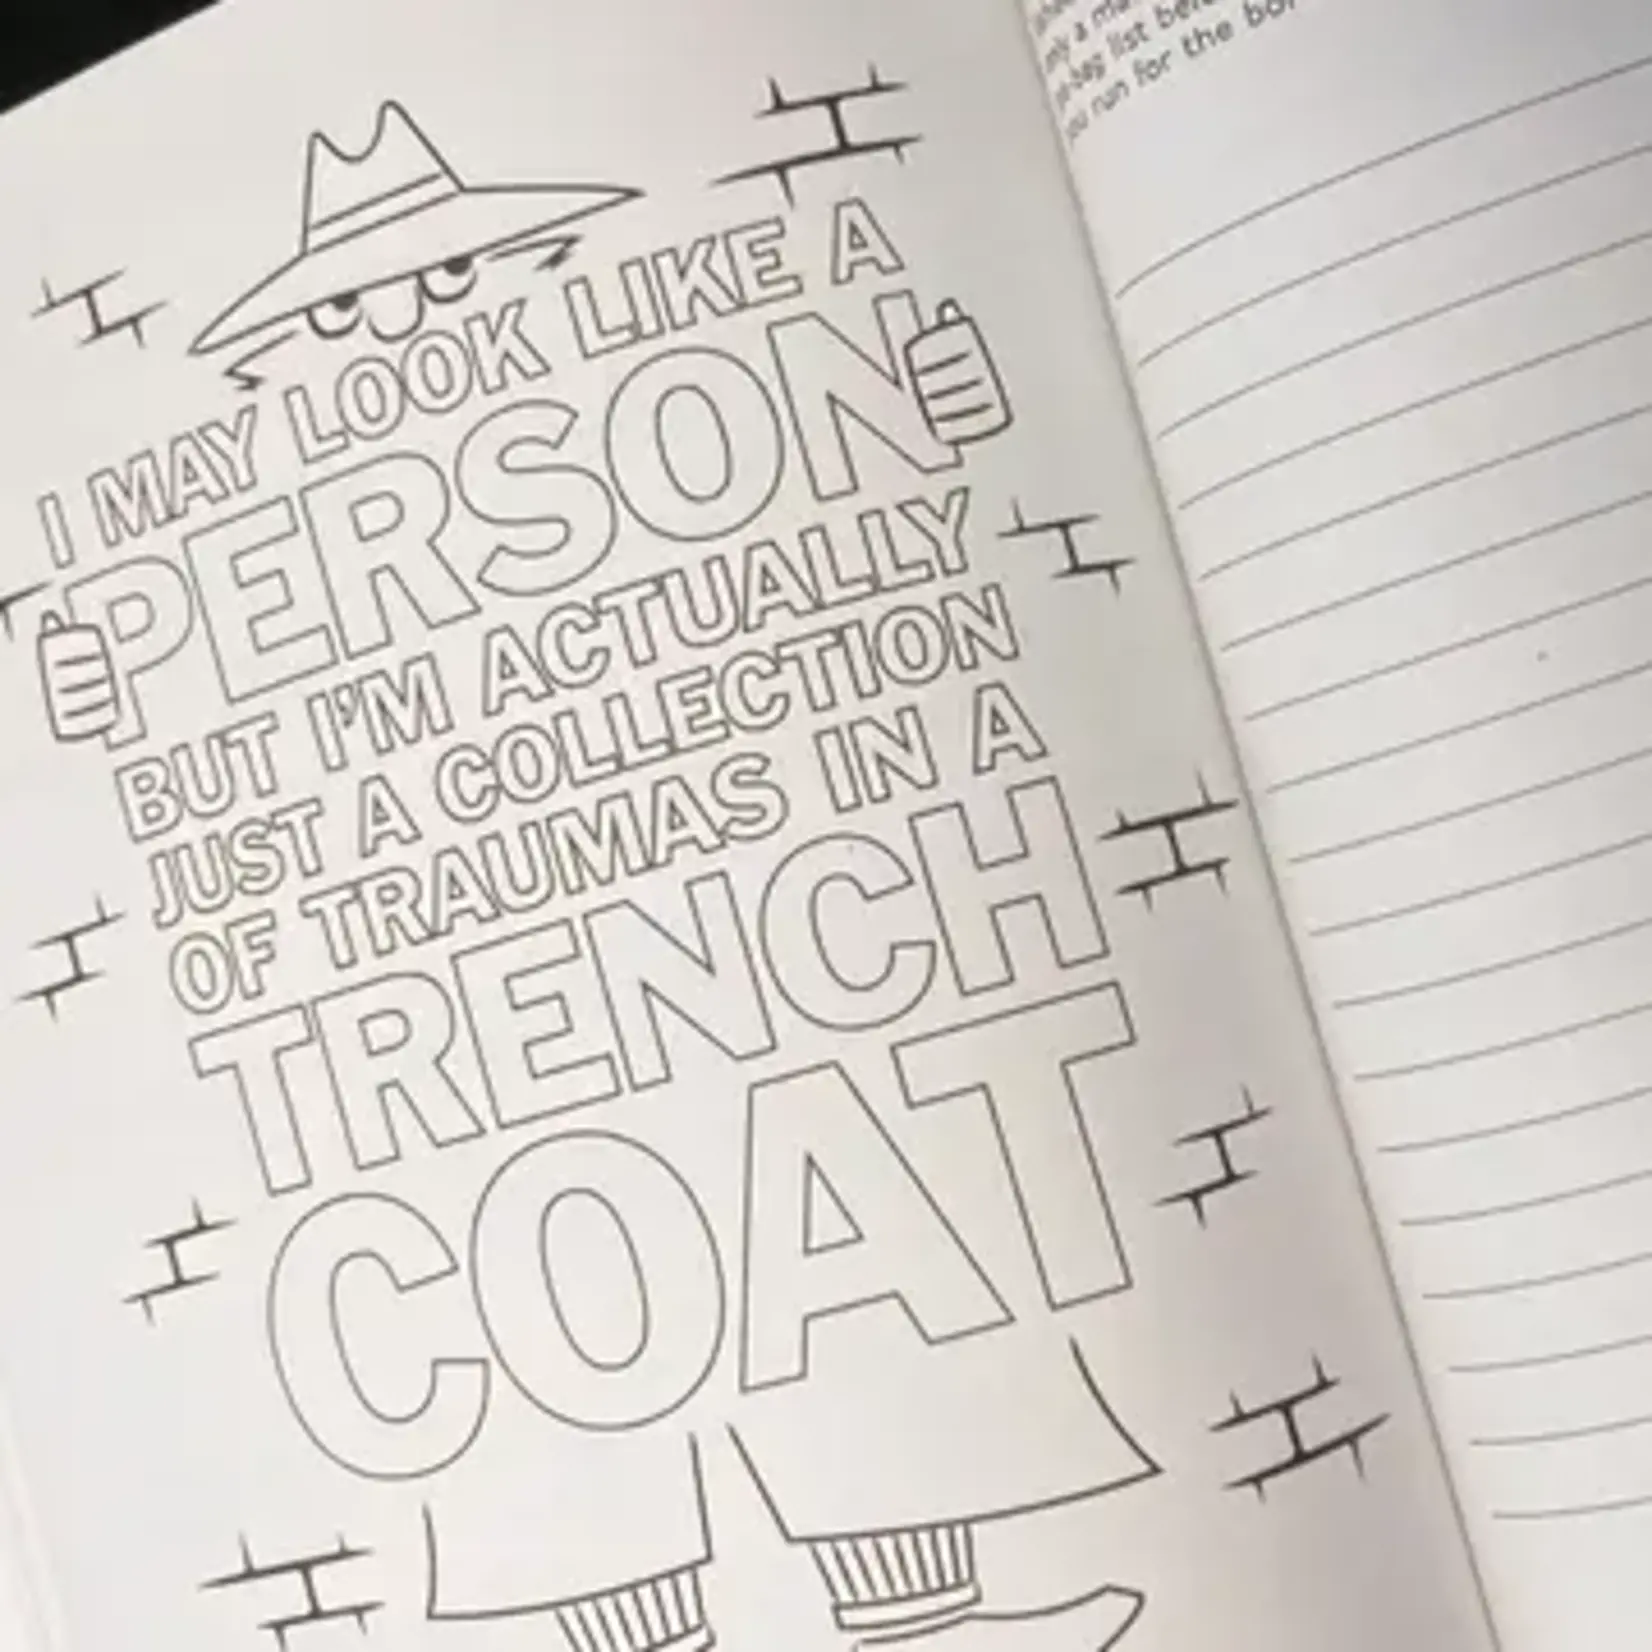 I MAY LOOK LIKE A
PERSON
BUT I'M ACTUALLY
JUST A COLLECTION
OF TRAUMAS IN A
TRENCH
COAT
a
list
run for the